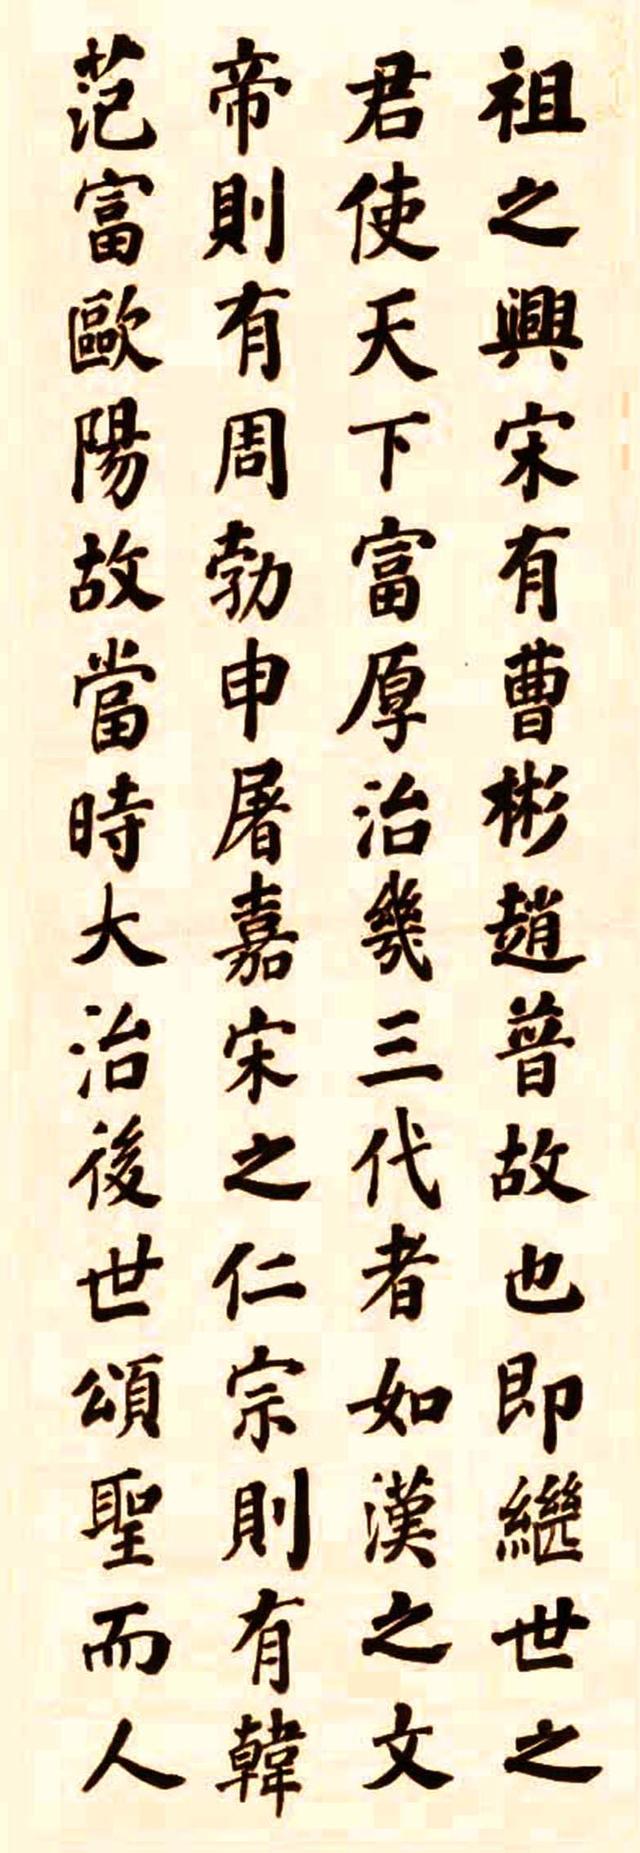 祖之興宋有曹彬趙普故也即繼世之
君使天下富厚治幾三代者如漢之文
帝則有周勃申屠嘉宋之仁宗則有韓
范富歐陽故當時大治後世頌聖而人